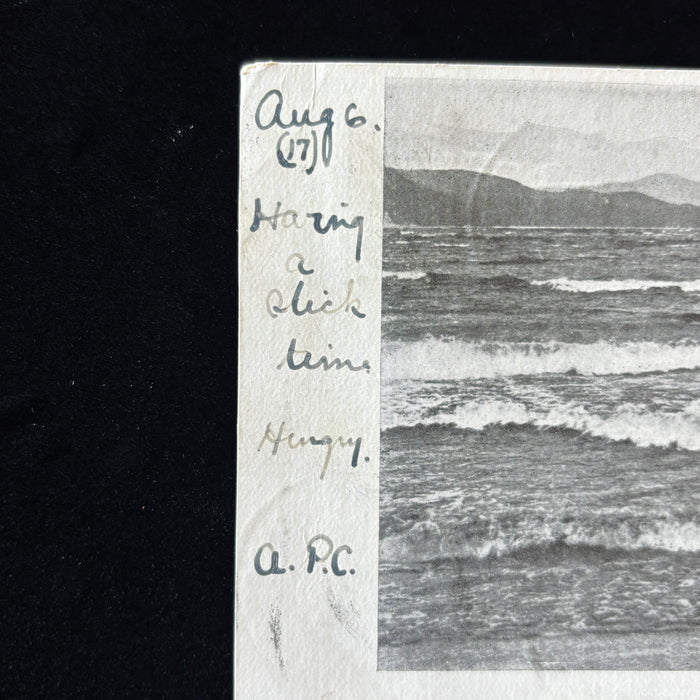 Aug 6.
(17)
Having
a
slick
time.
Hungry.
A. P.C.